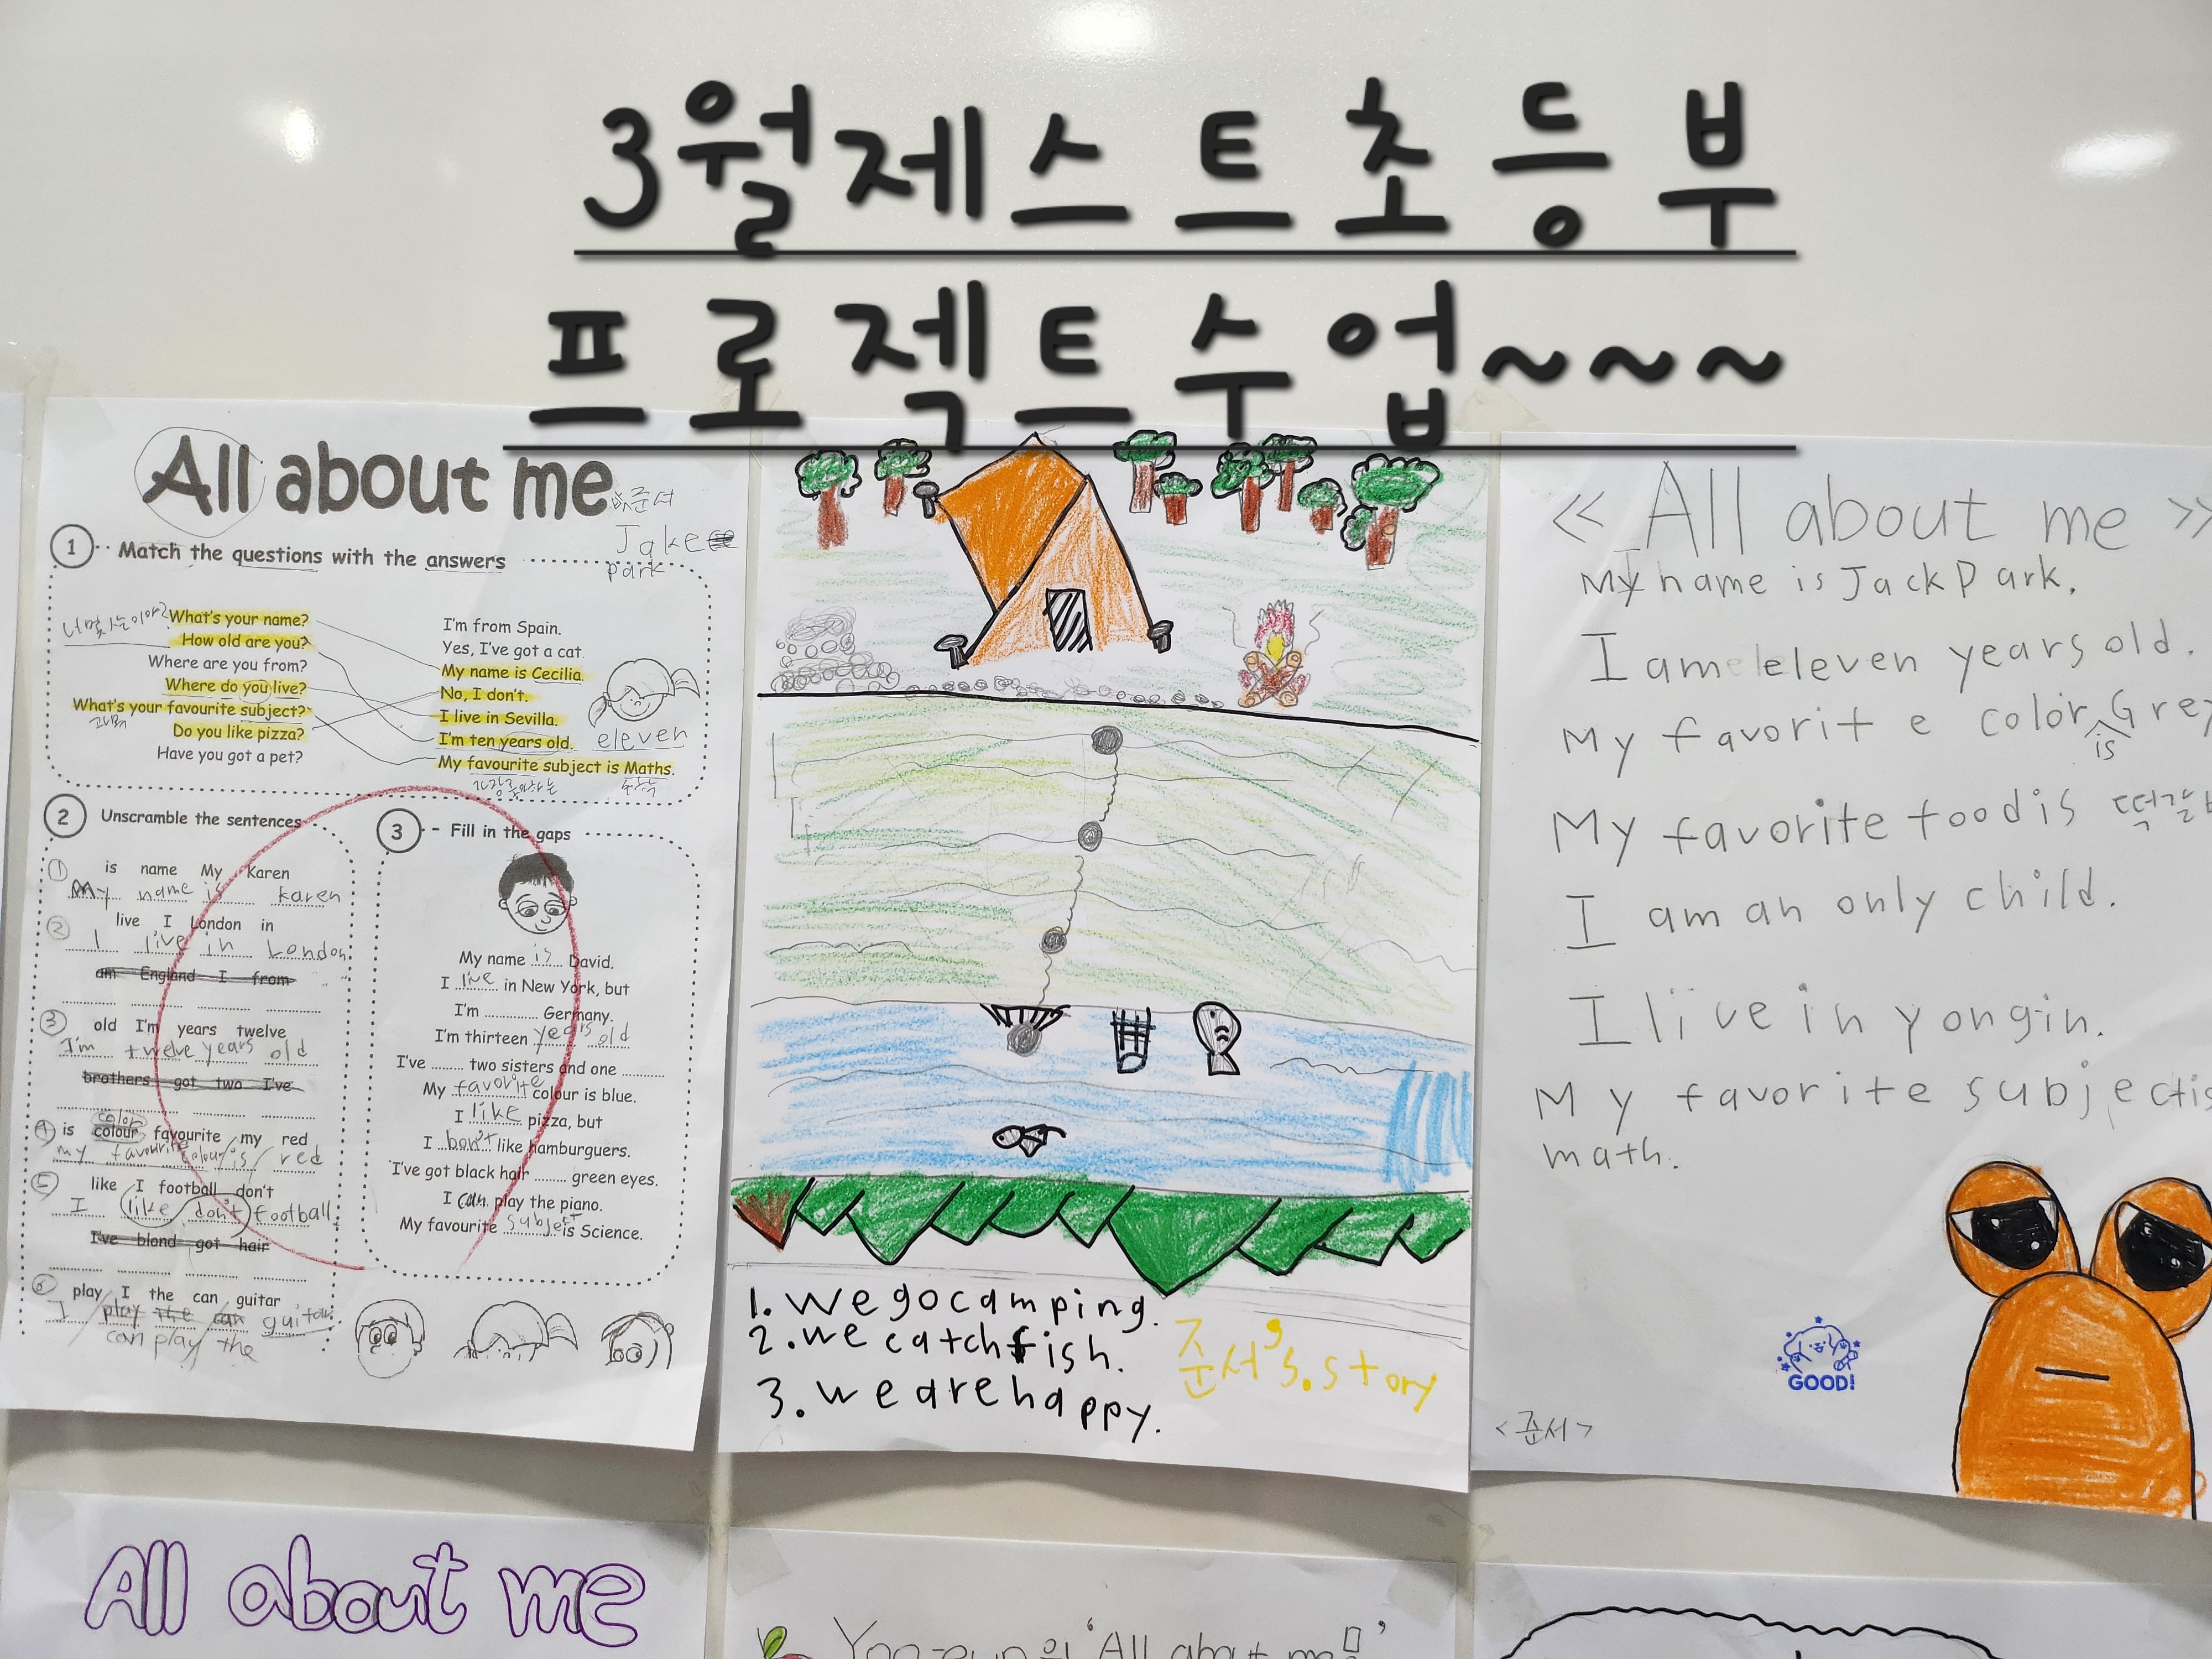 3월제스트초등부
프로젝트수업~~~
All about me
박준서
Jake
park
1 Match the questions with the answers
What's your name?
How old are you?
Where are you from?
Where do you live?
What's your favourite subject?
과목
Do you like pizza?
Have you got a pet?
I'm from Spain.
Yes, I've got a cat.
My name is Cecilia.
No, I don't.
I live in Sevilla.
I'm ten years old. eleven
My favourite subject is Maths.
가장 좋아하는 수학
2 Unscramble the sentences
① is name My Karen
My name is karen
② live I London in
I live in London
am England I from
③ old I'm years twelve
I'm twelve years old
brothers got two I've
color
④ is colour favourite my red
my favourite colour is red
⑤ like I football don't
I like don't football
I've blond got hair
⑥ play I the can guitar
I play the can guitar
can play the
3 - Fill in the gaps
My name is David.
I live in New York, but
I'm Germany.
I'm thirteen years old
I've two sisters and one
My favorite colour is blue.
I like pizza, but
I bon't like hamburguers.
I've got black hair green eyes.
I can play the piano.
My favourite subject is Science.
1. we go camping.
2. we catch fish.
3. we are happy.
준서's. story
<< All about me >>
My name is Jack Park.
I am eleven years old.
My favorite color is Grey
My favorite food is 떡갈비
I am an only child.
I live in yongin.
My favorite subject is
math.
GOOD!
<준서>
All about me
Yoo-eun의 'All about me'